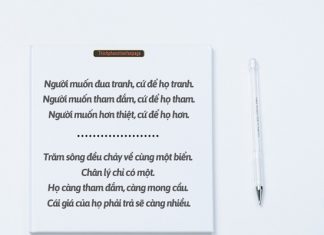 Người muốn đua tranh, cứ để họ tranh.
Người muốn tham đắm, cứ để họ tham.
Người muốn hơn thiệt, cứ để họ hơn.
Trăm sông đều chảy về cùng một biển.
Chân lý chỉ có một.
Họ càng tham đắm, càng mong cầu.
Cái giá của họ phải trả sẽ càng nhiều.